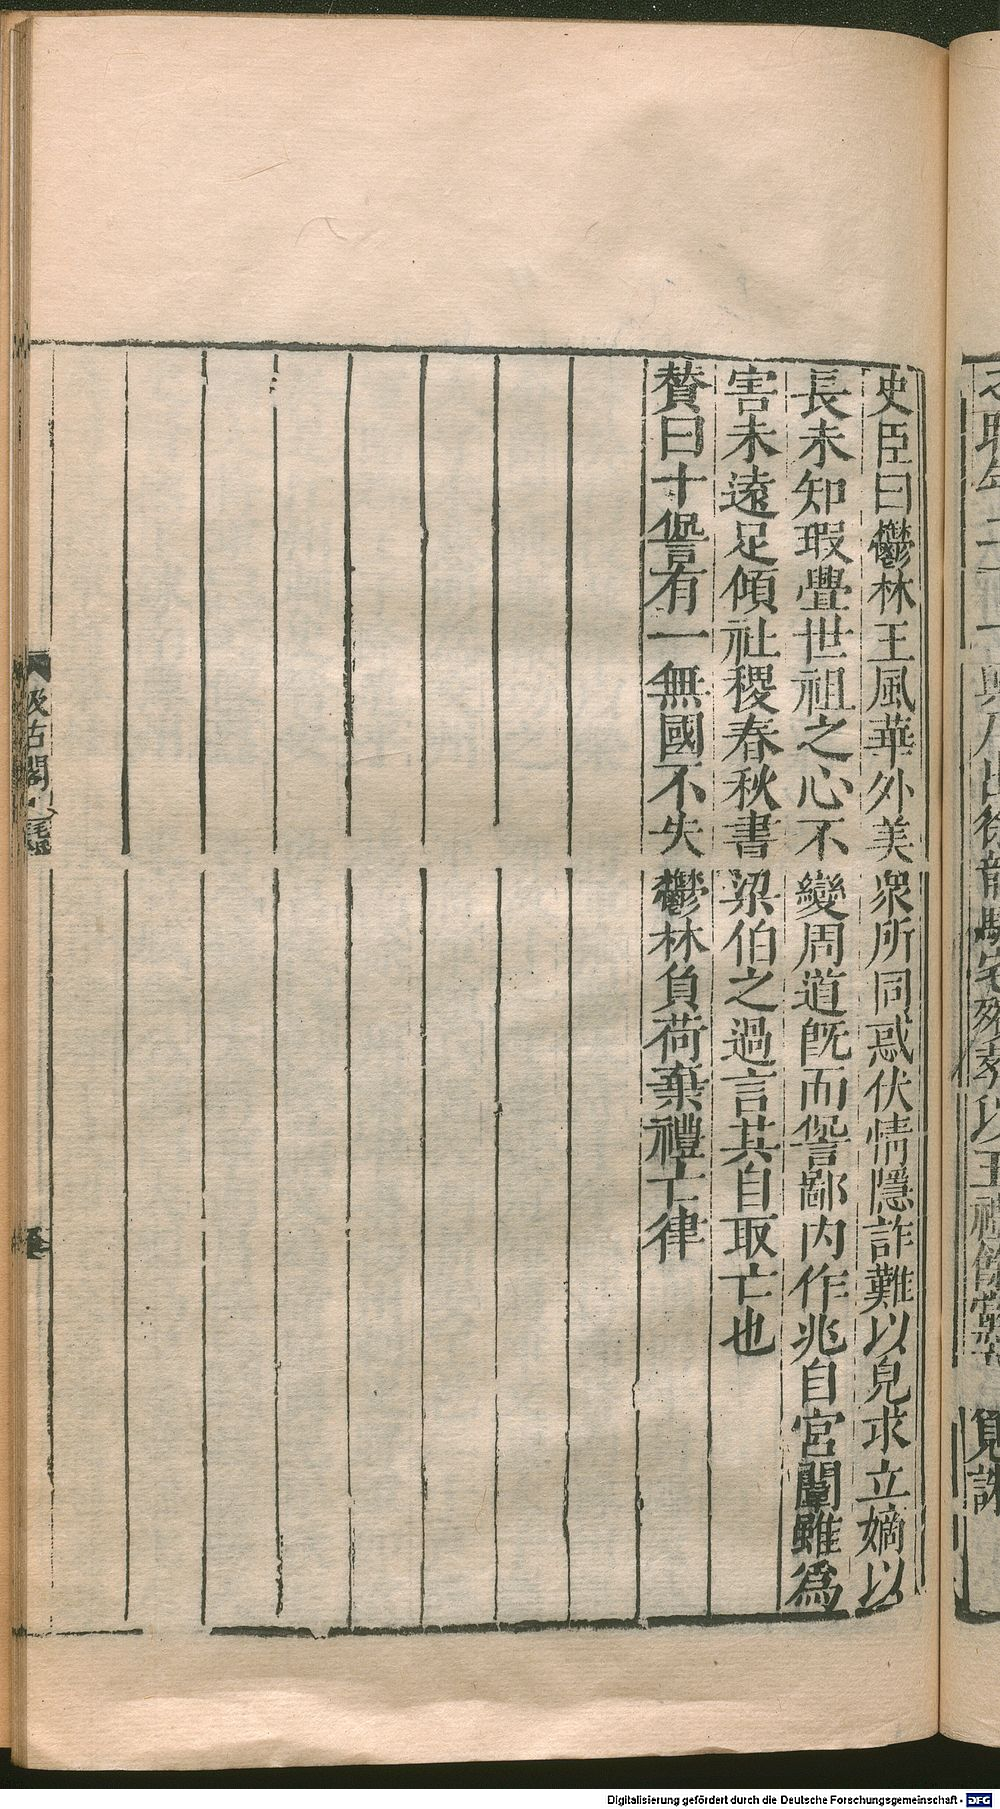 史臣曰鬱林王風華外美衆所同惑伏情隱詐難以皃求立嫡以
長未知瑕釁世祖之心不變周道旣而愆鄙内作兆自宮闈雖爲
害未遠足傾社稷春秋書梁伯之過言其自取亡也
賛曰十愆有一無國不失鬱林負荷棄禮亡律
汲古閣
毛氏
Digitalisierung gefördert durch die Deutsche Forschungsgemeinschaft - DFG